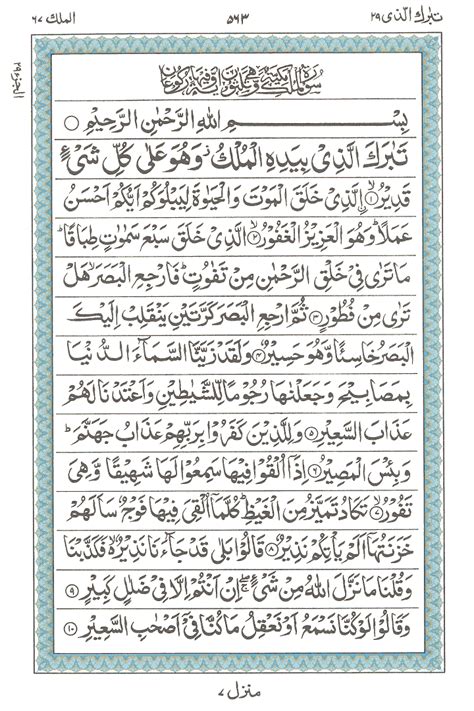 تبرك الذى ٢٩ ٥٦٣ الملك ٦٧
سُوْرَةُ الْمُلْكِ مَكِّيَّةٌ وَّهِىَ ثَلٰثُوْنَ اٰيَةً وَّفِيْهَا رُكُوْعَانِ
بِسْمِ اللّٰهِ الرَّحْمٰنِ الرَّحِيْمِ ○
تَبٰرَكَ الَّذِىْ بِيَدِهِ الْمُلْكُ ز وَهُوَ عَلٰى كُلِّ شَىْءٍ
قَدِيْرُ ۨ ۙ﴿١﴾ الَّذِىْ خَلَقَ الْمَوْتَ وَالْحَيٰوةَ لِيَبْلُوَكُمْ اَيُّكُمْ اَحْسَنُ
عَمَلًا ؕ وَهُوَ الْعَزِيْزُ الْغَفُوْرُ ۙ﴿٢﴾ الَّذِىْ خَلَقَ سَبْعَ سَمٰوٰتٍ طِبَاقًا ؕ
مَا تَرٰى فِىْ خَلْقِ الرَّحْمٰنِ مِنْ تَفٰوُتٍ ؕ فَارْجِعِ الْبَصَرَ ۙ هَلْ
تَرٰى مِنْ فُطُوْرٍ ﴿٣﴾ ثُمَّ ارْجِعِ الْبَصَرَ كَرَّتَيْنِ يَنْقَلِبْ اِلَيْكَ
الْبَصَرُ خَاسِئًا وَّهُوَ حَسِيْرٌ ﴿٤﴾ وَلَقَدْ زَيَّنَّا السَّمَآءَ الدُّنْيَا
بِمَصَابِيْحَ وَجَعَلْنٰهَا رُجُوْمًا لِّلشَّيٰطِيْنِ وَاَعْتَدْنَا لَهُمْ
عَذَابَ السَّعِيْرِ ﴿٥﴾ وَلِلَّذِيْنَ كَفَرُوْا بِرَبِّهِمْ عَذَابُ جَهَنَّمَ ؕ
وَبِئْسَ الْمَصِيْرُ ﴿٦﴾ اِذَآ اُلْقُوْا فِيْهَا سَمِعُوْا لَهَا شَهِيْقًا وَّهِىَ
تَفُوْرُ ۙ﴿٧﴾ تَكَادُ تَمَيَّزُ مِنَ الْغَيْظِ ؕ كُلَّمَآ اُلْقِىَ فِيْهَا فَوْجٌ سَاَلَهُمْ
خَزَنَتُهَآ اَلَمْ يَاْتِكُمْ نَذِيْرٌ ﴿٨﴾ قَالُوْا بَلٰى قَدْ جَآءَنَا نَذِيْرٌ ۙ فَكَذَّبْنَا
وَقُلْنَا مَا نَزَّلَ اللّٰهُ مِنْ شَىْءٍ ۖ اِنْ اَنْتُمْ اِلَّا فِىْ ضَلٰلٍ كَبِيْرٍ ﴿٩﴾
وَقَالُوْا لَوْ كُنَّا نَسْمَعُ اَوْ نَعْقِلُ مَا كُنَّا فِىْٓ اَصْحٰبِ السَّعِيْرِ ﴿١٠﴾
منزل ٧